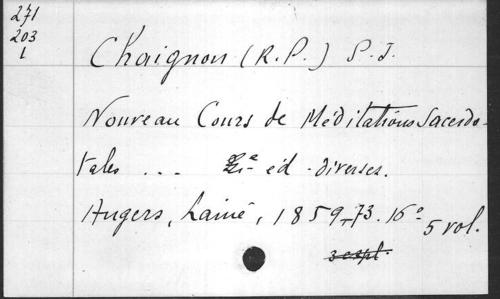 271
203
1
Chaignon (R.P.) S.J.
Nouveau Cours de Méditations Sacerdo-
tales ... éd. diverses.
Angers, Lainé, 1859-73. 16° 5 vol.
3 expl.